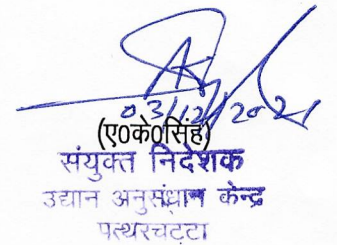 03/12/2021
(ए0के0सिंह)
संयुक्त निदेशक
उद्यान अनुसंधान केन्द्र
पत्थरचट्टा